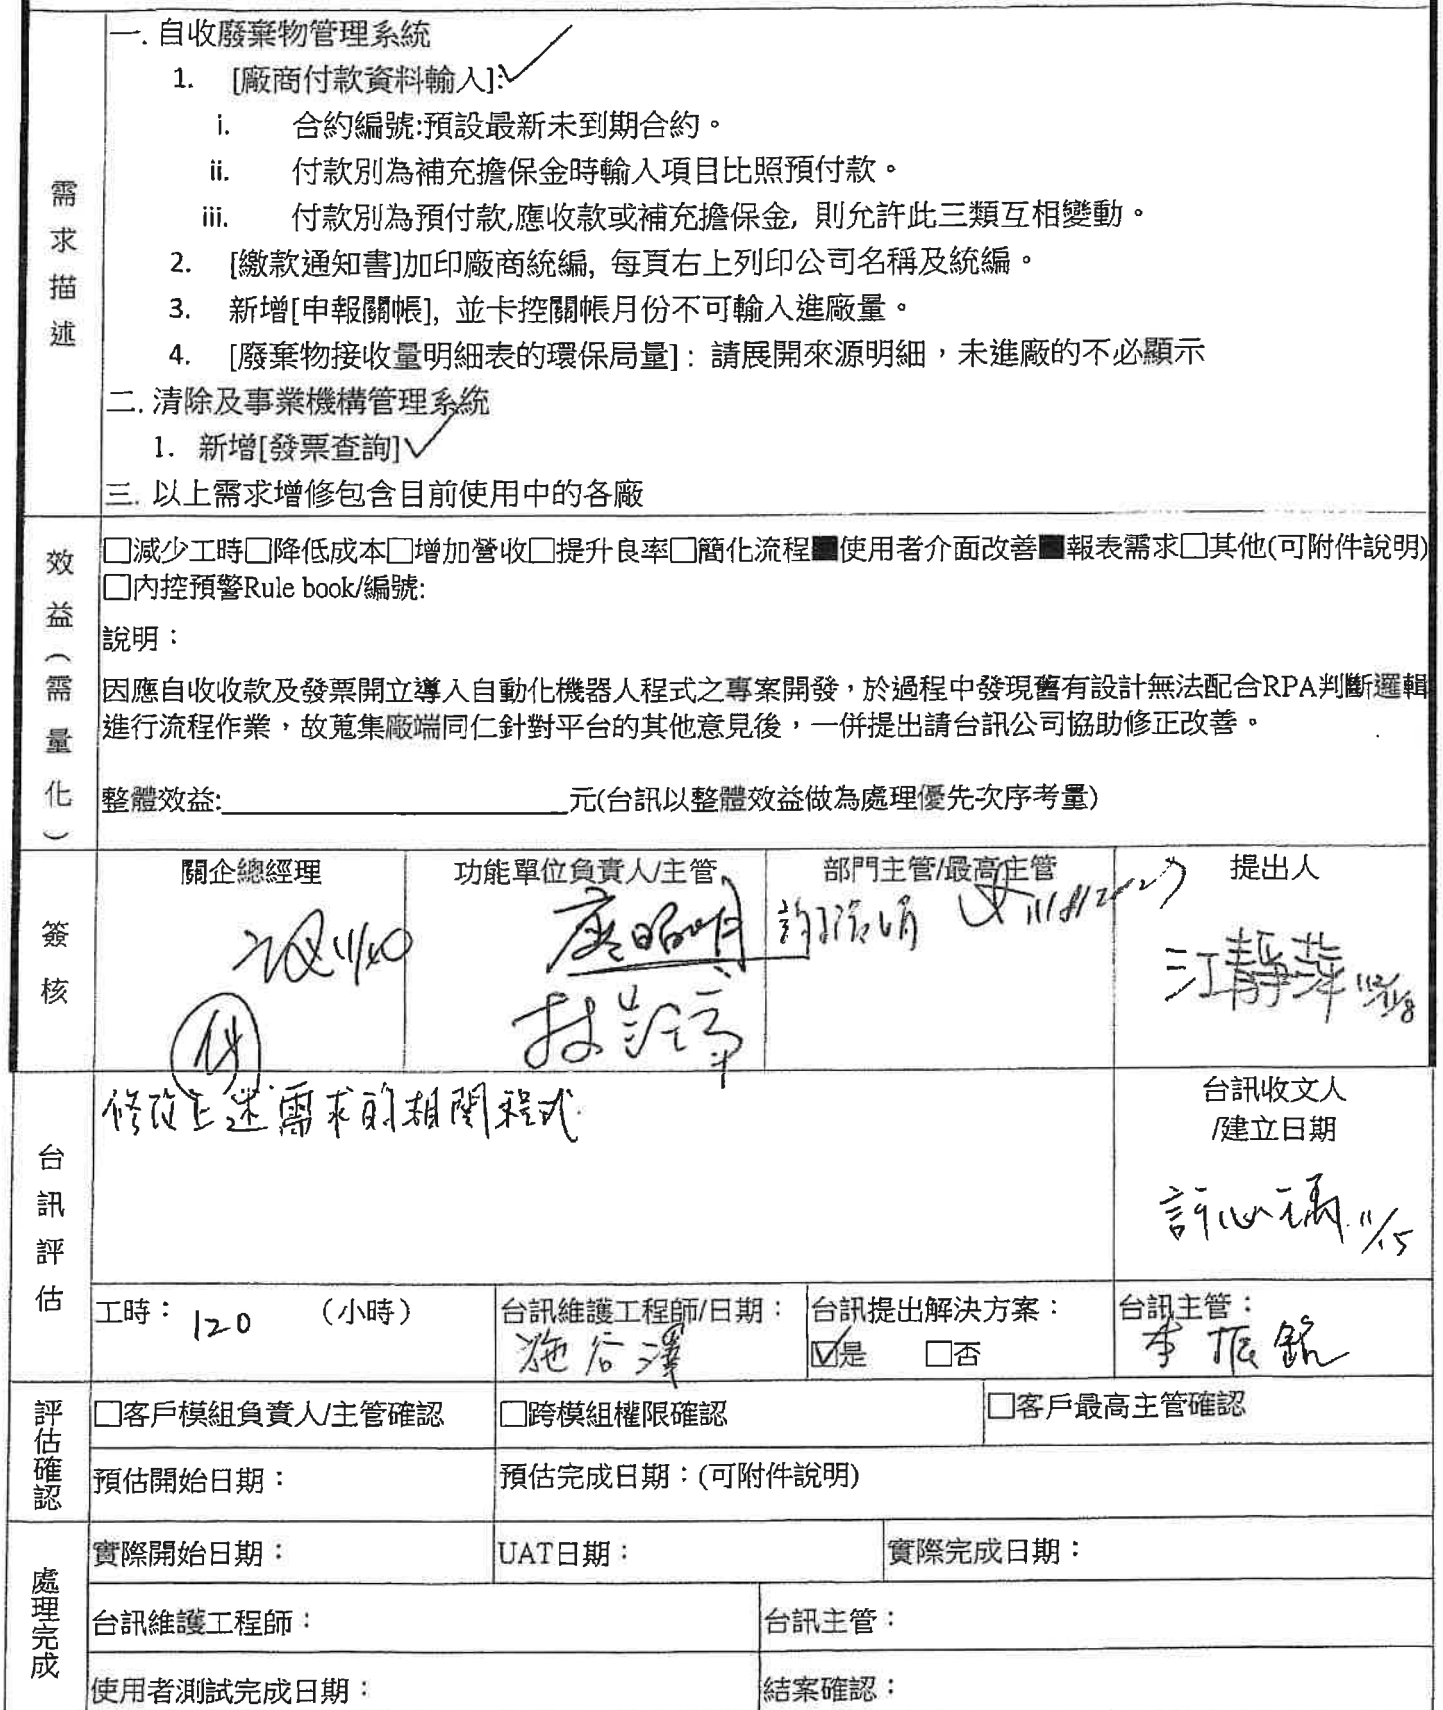 需求描述
一. 自收廢棄物管理系統
1. [廠商付款資料輸入]:
i. 合約編號:預設最新未到期合約。
ii. 付款別為補充擔保金時輸入項目比照預付款。
iii. 付款別為預付款,應收款或補充擔保金, 則允許此三類互相變動。
2. [繳款通知書]加印廠商統編, 每頁右上列印公司名稱及統編。
3. 新增[申報關帳], 並卡控關帳月份不可輸入進廠量。
4. [廢棄物接收量明細表的環保局量]: 請展開來源明細，未進廠的不必顯示
二. 清除及事業機構管理系統
1. 新增[發票查詢]
三. 以上需求增修包含目前使用中的各廠
效益(需量化)
□減少工時□降低成本□增加營收□提升良率□簡化流程■使用者介面改善■報表需求□其他(可附件說明)
□內控預警Rule book/編號:
說明：
因應自收收款及發票開立導入自動化機器人程式之專案開發，於過程中發現舊有設計無法配合RPA判斷邏輯
進行流程作業，故蒐集廠端同仁針對平台的其他意見後，一併提出請台訊公司協助修正改善。
整體效益:＿＿＿＿＿＿元(台訊以整體效益做為處理優先次序考量)
簽核
關企總經理 功能單位負責人/主管 部門主管/最高主管 提出人
廖昭明
江靜萍 112/11/8
台訊評估
修改上述需求的相關程式.
台訊收文人
/建立日期
許心瑀 11/15
工時：120 （小時） 台訊維護工程師/日期： 台訊提出解決方案： 台訊主管：
☑是 □否 李振銘
評估確認
□客戶模組負責人/主管確認 □跨模組權限確認 □客戶最高主管確認
預估開始日期： 預估完成日期：(可附件說明)
處理完成
實際開始日期： UAT日期： 實際完成日期：
台訊維護工程師： 台訊主管：
使用者測試完成日期： 結案確認：